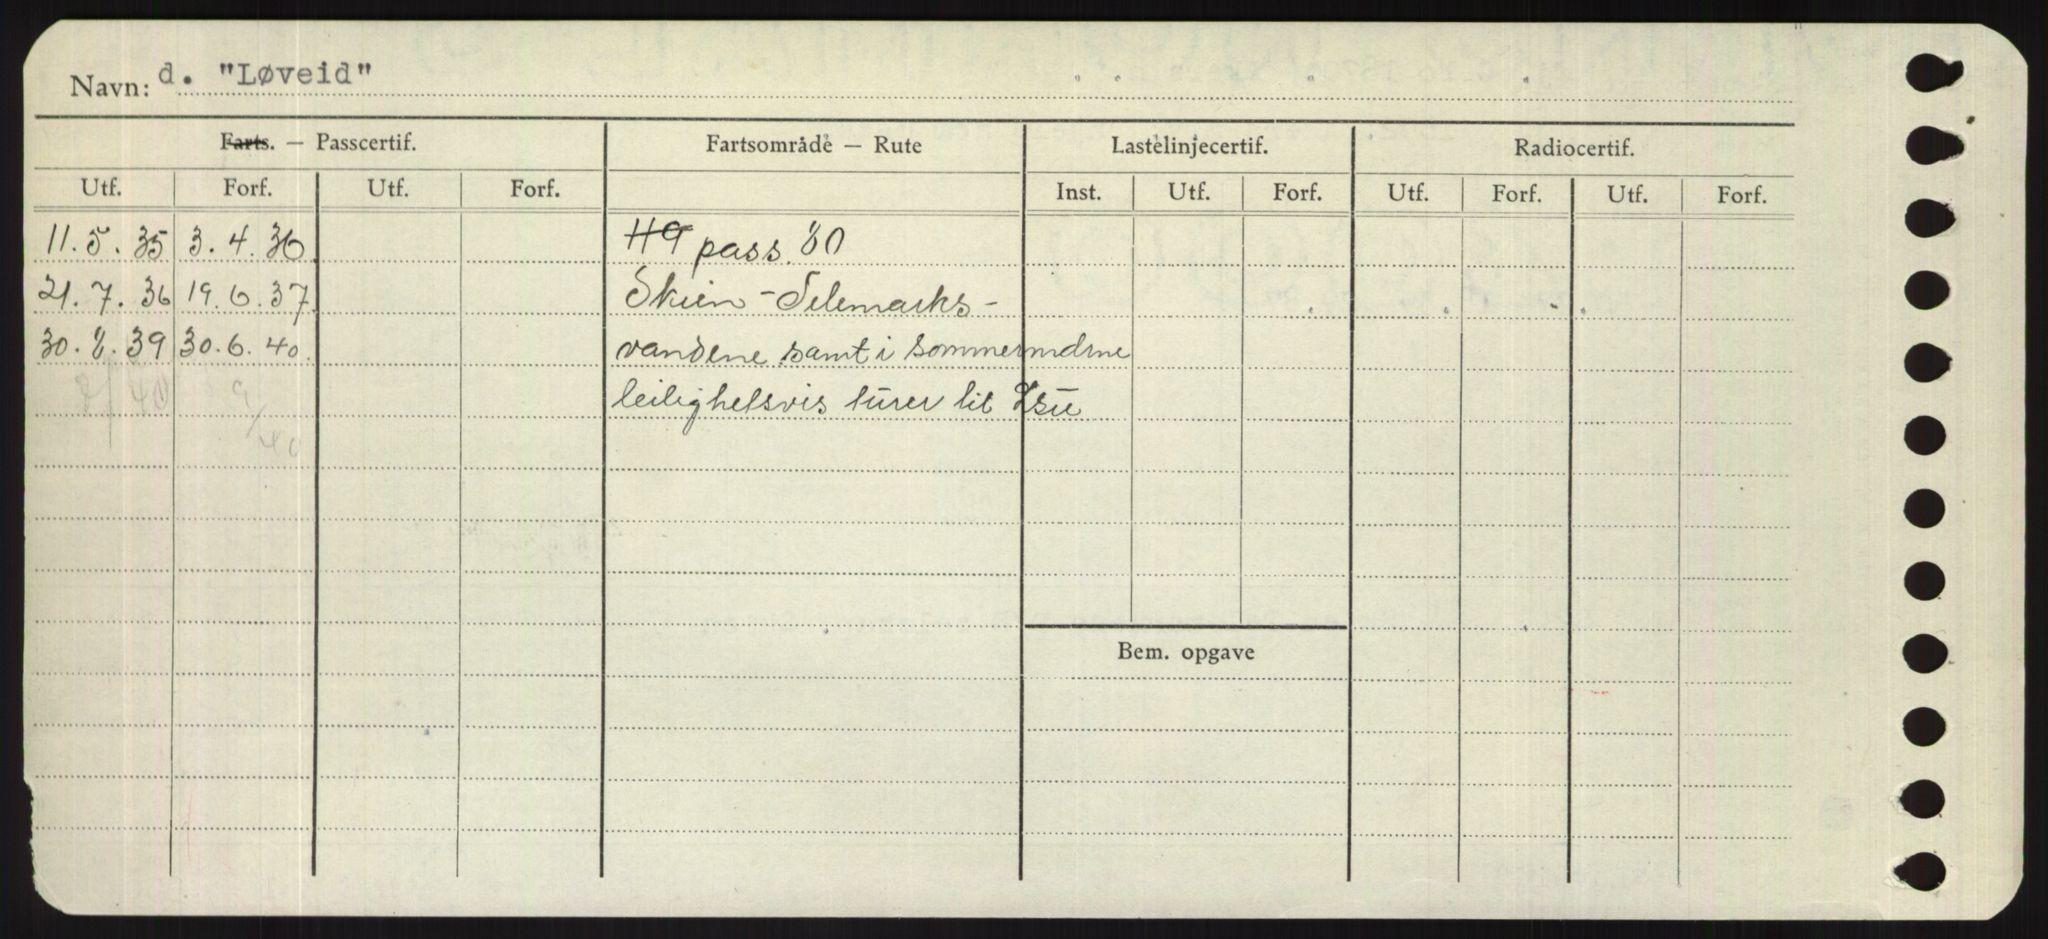 Navn: d. "Løveid"
Farts. — Passcertif. Fartsområde — Rute Lastelinjecertif. Radiocertif.
Utf. Forf. Utf. Forf. Inst. Utf. Forf. Utf. Forf. Utf. Forf.
11.5.35 3.4.36 119 pass. 80
21.7.36 19.6.37 Skien-Telemarks-
30.8.39 30.6.40 vandene samt i sommermdrne
/40 9/40 leilighetsvis turer til
Bem. opgave